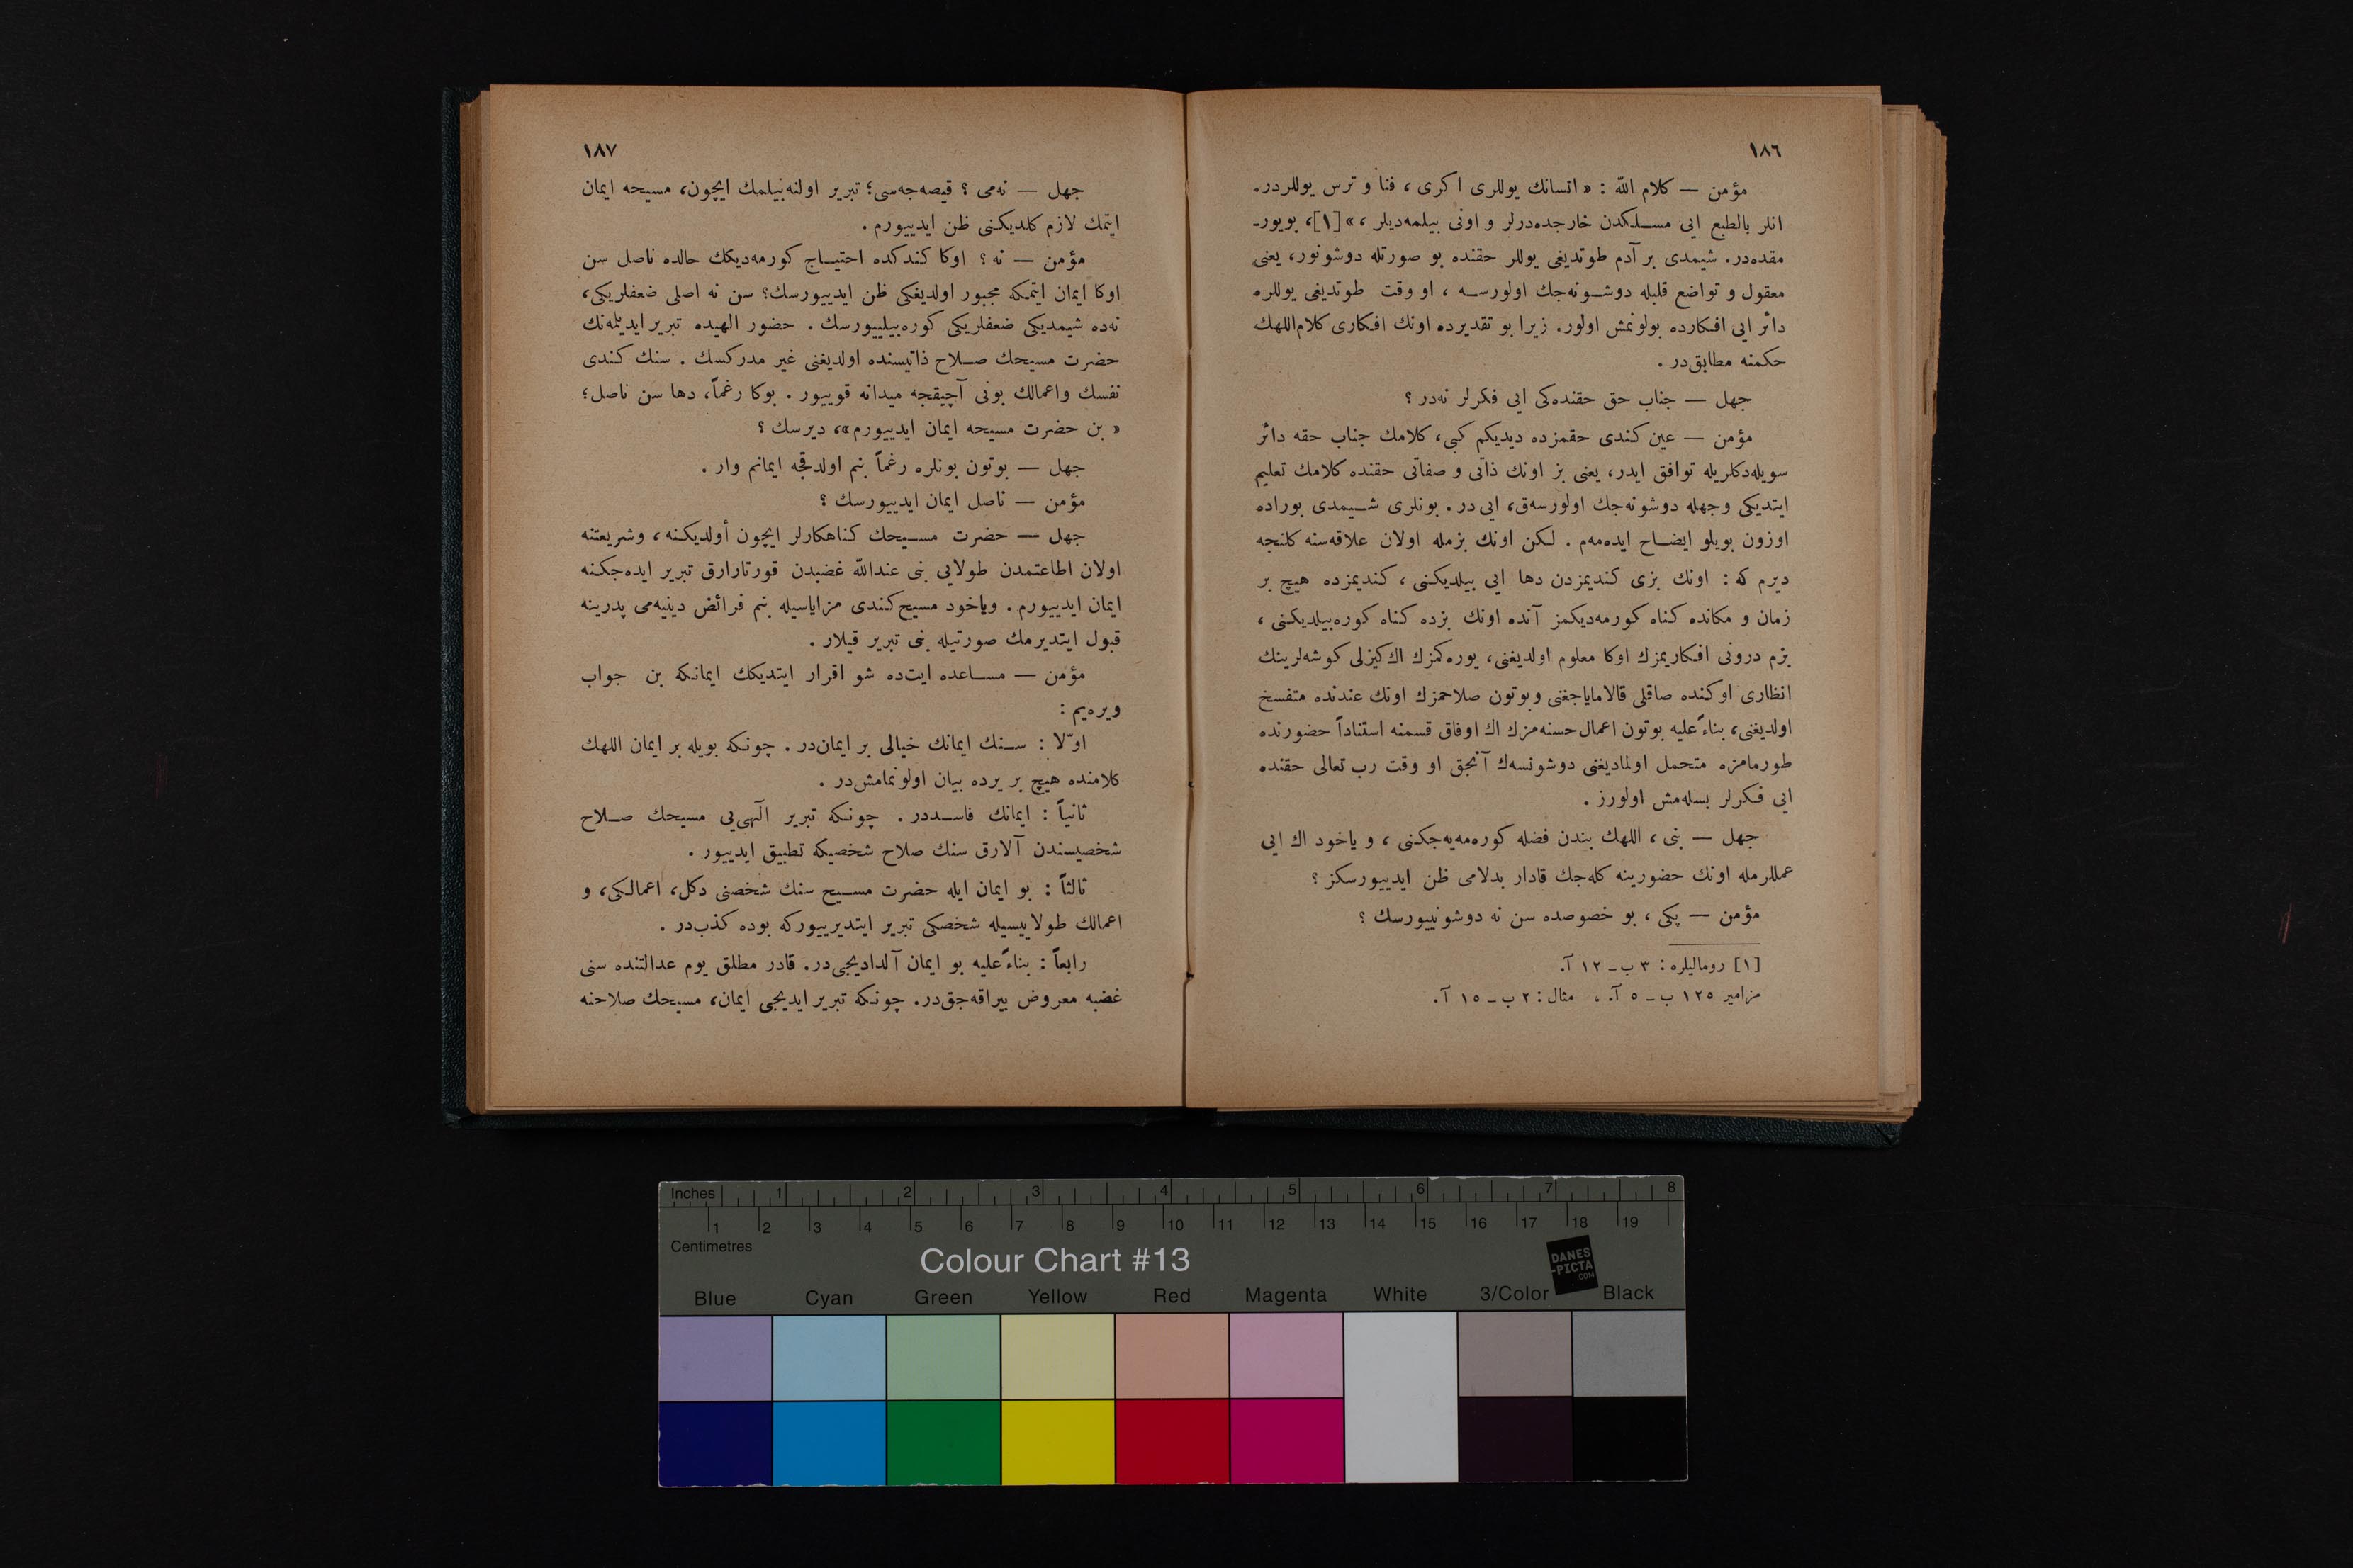 ١٨٦
مؤمن — كلام الله : « انسانك يوللرى اكرى ، فنا و ترس يوللردر.
انلر بالطبع ايى مسلكدن خارجده‌درلر و اونى بيلمه‌ديلر ، » [١]، بويور-
مقده‌در. شيمدى بر آدم طوتديغى يوللر حقنده بو صورتله دوشونور، يعنى
معقول و تواضع قلبله دوشونه‌جك اولورسه ، او وقت طوتديغى يوللره
دائر ايى افكارده بولونمش اولور. زيرا بو تقديرده اونك افكارى كلام‌اللهك
حكمنه مطابق‌در .
جهل — جناب حق حقنده‌كى ايى فكرلر نه‌در ؟
مؤمن — عين كندى حقمزده ديديكم كبى، كلامك جناب حقه دائر
سويله‌دكلريله توافق ايدر، يعنى بز اونك ذاتى و صفاتى حقنده كلامك تعليم
ايتديكى وجهله دوشونه‌جك اولورسه‌ق، ايى در . بونلرى شيمدى بوراده
اوزون بويلو ايضاح ايده‌مه‌م . لكن اونك بزمله اولان علاقه‌سنه كلنجه
ديرم كه : اونك بزى كنديمزدن دها ايى بيلديكنى ، كنديمزده هيچ بر
زمان و مكانده كناه كورمه‌ديكمز آنده اونك بزده كناه كوره‌بيلديكنى ،
بزم درونى افكاريمزك اوكا معلوم اولديغنى، يوره‌كمزك اك كيزلى كوشه‌لرينك
انظارى اوكنده صاقلى قالاماياجغنى وبوتون صلاحمزك اونك عندنده متفسخ
اولديغنى، بناءً عليه بوتون اعمال حسنه‌مزك اك اوفاق قسمنه استناداً حضورنده
طورمامزه متحمل اولماديغنى دوشونسه‌ك آنجق او وقت رب تعالى حقنده
ايى فكرلر بسله‌مش اولورز .
جهل — بنى ، اللهك بندن فضله كوره‌مه‌يه‌جكنى ، و ياخود اك ايى
عمللرمله اونك حضورينه كله‌جك قادار بدلامى ظن ايدييورسكز ؟
مؤمن — پكى ، بو خصوصده سن نه دوشونييورسك ؟
[١] روماليلره : ٣ ب ـ ١٢ آ.
مزامير ١٢٥ ب ـ ٥ آ. ، مثال : ٢ ب ـ ١٥ آ.
١٨٧
جهل — نه‌مى ؟ قيصه‌جه‌سى؛ تبرير اولنه‌بيلمك ايچون، مسيحه ايمان
ايتمك لازم كلديكنى ظن ايدييورم .
مؤمن — نه ؟ اوكا كندكده احتياج كورمه‌ديكك حالده ناصل سن
اوكا ايمان ايتمكه مجبور اولديغكى ظن ايدييورسك؟ سن نه اصلى ضعفلريكى،
نه‌ده شيمديكى ضعفلريكى كوره‌بيلييورسك . حضور الهيده تبرير ايديلمه‌نك
حضرت مسيحك صلاح ذاتيسنده اولديغنى غير مدركسك . سنك كندى
نفسك واعمالك بونى آچيقجه ميدانه قوييور . بوكا رغماً، دها سن ناصل؛
« بن حضرت مسيحه ايمان ايدييورم»، ديرسك ؟
جهل — بوتون بونلره رغماً بنم اولدقجه ايمانم وار .
مؤمن — ناصل ايمان ايدييورسك ؟
جهل — حضرت مسيحك كناهكارلر ايچون أولديكنه ، وشريعتنه
اولان اطاعتمدن طولايى بنى عندالله غضبدن قورتارارق تبرير ايده‌جكنه
ايمان ايدييورم . وياخود مسيح كندى مزاياسيله بنم فرائض دينيه‌مى پدرينه
قبول ايتديرمك صورتيله بنى تبرير قيلار .
مؤمن — مساعده ايت‌ده شو اقرار ايتديكك ايمانكه بن جواب
ويره‌يم :
اوّلا : سنك ايمانك خيالى بر ايمان‌در . چونكه بويله بر ايمان اللهك
كلامنده هيچ بر يرده بيان اولونمامش‌در .
ثانياً : ايمانك فاسددر . چونكه تبرير الٓهى‌يى مسيحك صلاح
شخصيسندن آلارق سنك صلاح شخصيكه تطبيق ايدييور .
ثالثاً : بو ايمان ايله حضرت مسيح سنك شخصنى دكل، اعمالكى، و
اعمالك طولاييسيله شخصكى تبرير ايتديرييوركه بوده كذب‌در .
رابعاً : بناءً عليه بو ايمان آلداديجى‌در. قادر مطلق يوم عدالتنده سنى
غضبه معروض بيراقه‌جق‌در. چونكه تبرير ايديجى ايمان، مسيحك صلاحنه
Inches 1 2 3 4 5 6 7 8
1 2 3 4 5 6 7 8 9 10 11 12 13 14 15 16 17 18 19
Centimetres
Colour Chart #13
DANES
-PICTA
.COM
Blue Cyan Green Yellow Red Magenta White 3/Color Black